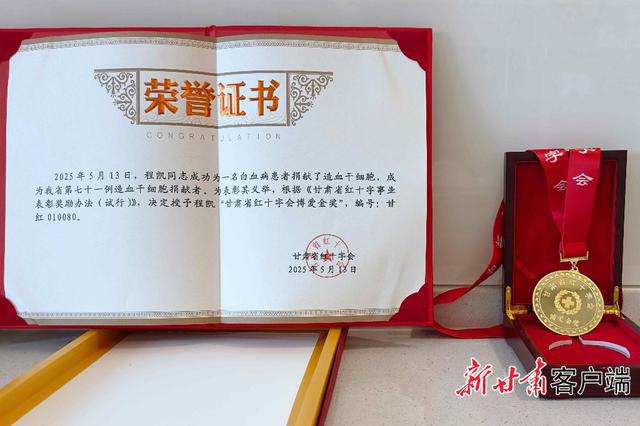 荣誉证书
CONGRATULATION
2025年5月13日，程凯同志成功为一名白血病患者捐献了造血干细胞，成
为我省第七十一例造血干细胞捐献者。为表彰其义举，根据《甘肃省红十字事业
表彰奖励办法（试行）》，决定授予程凯“甘肃省红十字会博爱金奖”，编号：甘
红010080。
甘肃省红十字会
2025年5月13日
字会
甘肃省红十字会
新甘肃客户端